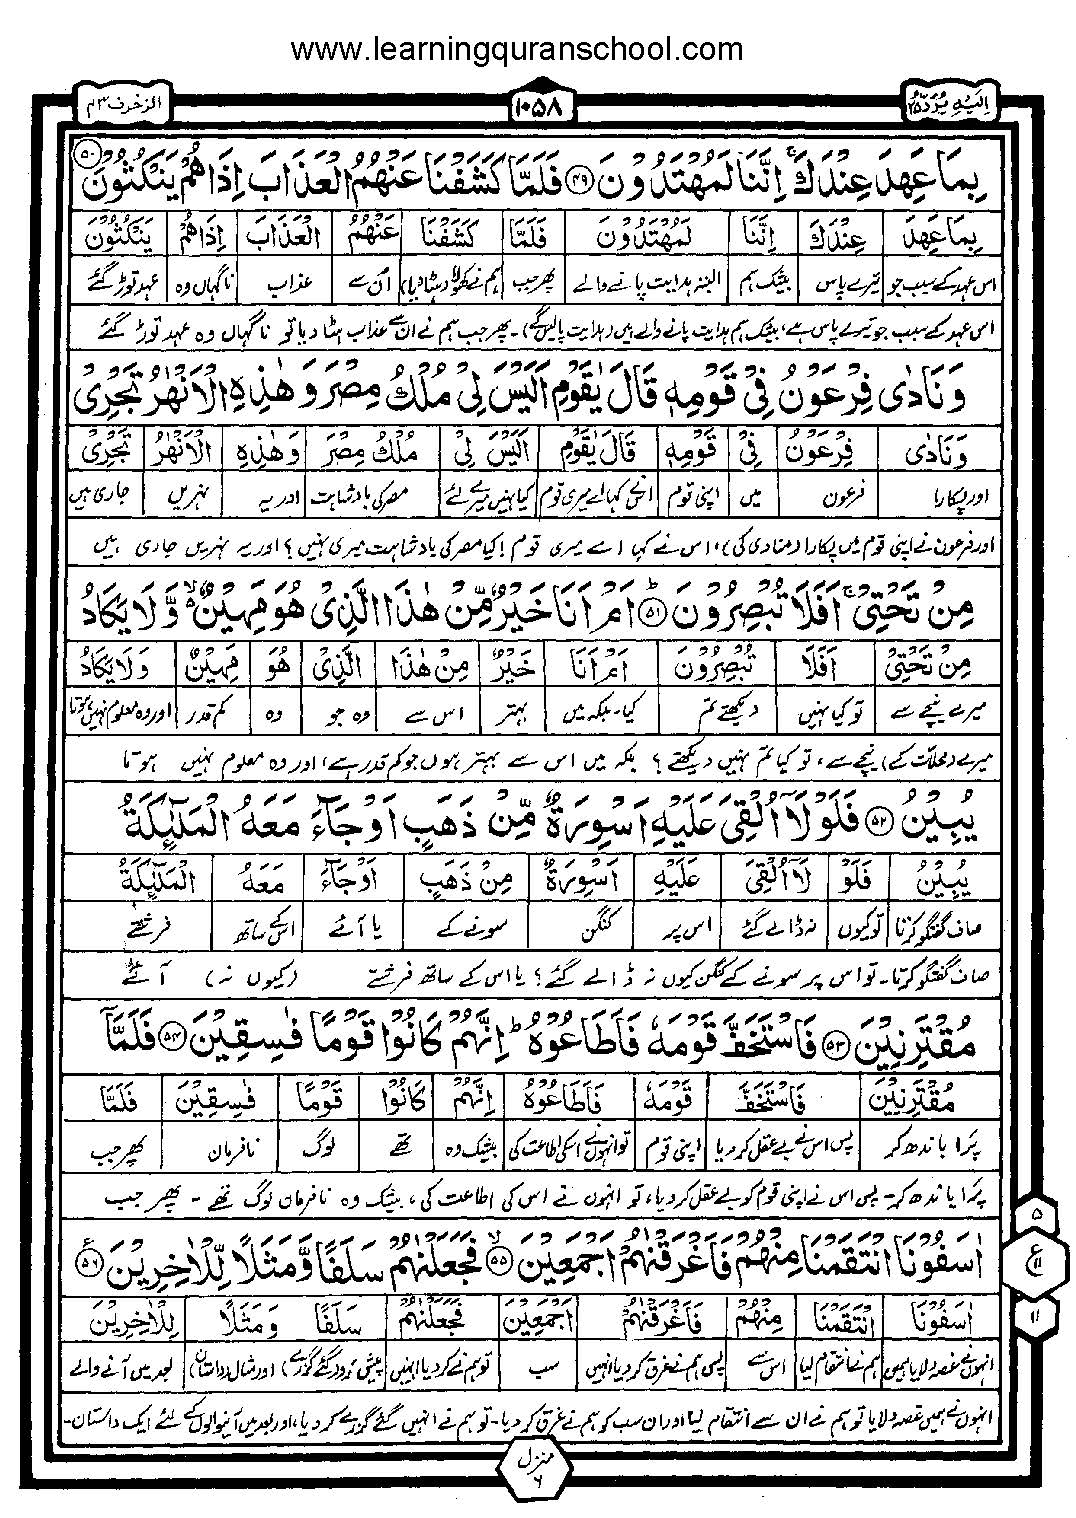 www.learningquranschool.com
اِلَیْهِ یُرَدُّ ۲۵
۱۰۵۸
الزخرف ۴۳
بِمَا عَهِدَ عِنْدَكَ ۚ اِنَّنَا لَمُهْتَدُوْنَ ﴿۴۹﴾ فَلَمَّا كَشَفْنَا عَنْهُمُ الْعَذَابَ اِذَا هُمْ یَنْكُثُوْنَ ﴿۵۰﴾
بِمَا عَهِدَ عِنْدَكَ اِنَّنَا لَمُهْتَدُوْنَ فَلَمَّا كَشَفْنَا عَنْهُمُ الْعَذَابَ اِذَا هُمْ یَنْكُثُوْنَ
اس عہد کے سبب جو تیرے پاس بیشک ہم البتہ ہدایت پانے والے پھر جب ہم نے کھولا (ہٹا دیا) اُن سے عذاب ناگہاں وہ عہد توڑ گئے
اس عہد کے سبب جو تیرے پاس ہے، بیشک ہم ہدایت پانے والے ہیں (ہدایت پالیں گے)۔ پھر جب ہم نے ان سے عذاب ہٹا دیا تو ناگہاں وہ عہد توڑ گئے
وَ نَادٰی فِرْعَوْنُ فِیْ قَوْمِهٖ قَالَ یٰقَوْمِ اَلَیْسَ لِیْ مُلْكُ مِصْرَ وَ هٰذِهِ الْاَنْهٰرُ تَجْرِیْ
وَ نَادٰی فِرْعَوْنُ فِیْ قَوْمِهٖ قَالَ یٰقَوْمِ اَلَیْسَ لِیْ مُلْكُ مِصْرَ وَ هٰذِهِ الْاَنْهٰرُ تَجْرِیْ
اور پکارا فرعون میں اپنی قوم اس نے کہا اے میری قوم کیا نہیں میرے لئے مصر کی بادشاہت اور یہ نہریں جاری ہیں
اور فرعون نے اپنی قوم میں پکارا (منادی کی)، اس نے کہا اے میری قوم! کیا مصر کی بادشاہت میری نہیں؟ اور یہ نہریں جاری ہیں
مِنْ تَحْتِیْ ۚ اَفَلَا تُبْصِرُوْنَ ﴿۵۱﴾ؕ اَمْ اَنَا خَیْرٌ مِّنْ هٰذَا الَّذِیْ هُوَ مَهِیْنٌ ۙ۬ وَّ لَا یَكَادُ
مِنْ تَحْتِیْ اَفَلَا تُبْصِرُوْنَ اَمْ اَنَا خَیْرٌ مِنْ هٰذَا الَّذِیْ هُوَ مَهِیْنٌ وَ لَا یَكَادُ
میرے نیچے سے تو کیا نہیں دیکھتے تم کیا۔ بلکہ میں بہتر اس سے وہ جو وہ کم قدر اور وہ معلوم نہیں ہوتا
میرے (محلات کے) نیچے سے، تو کیا تم نہیں دیکھتے؟ بلکہ میں اس سے بہتر ہوں جو کم قدر ہے، اور وہ معلوم نہیں ہوتا
یُبِیْنُ ﴿۵۲﴾ فَلَوْ لَاۤ اُلْقِیَ عَلَیْهِ اَسْوِرَةٌ مِّنْ ذَهَبٍ اَوْ جَآءَ مَعَهُ الْمَلٰٓئِكَةُ
یُبِیْنُ فَلَوْ لَاۤ اُلْقِیَ عَلَیْهِ اَسْوِرَةٌ مِنْ ذَهَبٍ اَوْ جَآءَ مَعَهُ الْمَلٰٓئِكَةُ
صاف گفتگو کرتا تو کیوں نہ ڈالے گئے اس پر کنگن سونے کے یا آئے اس کے ساتھ فرشتے
صاف گفتگو کرتا۔ تو اس پر سونے کے کنگن کیوں نہ ڈالے گئے؟ یا اس کے ساتھ فرشتے (کیوں نہ) آئے
مُقْتَرِنِیْنَ ﴿۵۳﴾ فَاسْتَخَفَّ قَوْمَهٗ فَاَطَاعُوْهُ ؕ اِنَّهُمْ كَانُوْا قَوْمًا فٰسِقِیْنَ ﴿۵۴﴾ فَلَمَّاۤ
مُقْتَرِنِیْنَ فَاسْتَخَفَّ قَوْمَهٗ فَاَطَاعُوْهُ اِنَّهُمْ كَانُوْا قَوْمًا فٰسِقِیْنَ فَلَمَّا
پرا باندھ کر پس اس نے بے عقل کر دیا اپنی قوم تو انہوں نے اسکی اطاعت کی بیشک وہ تھے لوگ نافرمان پھر جب
پرا باندھ کر۔ پس اس نے اپنی قوم کو بے عقل کر دیا، تو انہوں نے اس کی اطاعت کی، بیشک وہ نافرمان لوگ تھے۔ پھر جب
اٰسَفُوْنَا انْتَقَمْنَا مِنْهُمْ فَاَغْرَقْنٰهُمْ اَجْمَعِیْنَ ﴿۵۵﴾ۙ فَجَعَلْنٰهُمْ سَلَفًا وَّ مَثَلًا لِّلْاٰخِرِیْنَ ﴿۵۶﴾
اٰسَفُوْنَا انْتَقَمْنَا مِنْهُمْ فَاَغْرَقْنٰهُمْ اَجْمَعِیْنَ فَجَعَلْنٰهُمْ سَلَفًا وَ مَثَلًا لِلْاٰخِرِیْنَ
انہوں نے غصہ دلایا ہمیں ہم نے انتقام لیا اُن سے پس ہم نے غرق کر دیا انہیں سب تو ہم نے کر دیا انہیں پیش رو (گئے گزرے) اور مثال (داستان) بعد میں آنے والے
انہوں نے ہمیں غصہ دلایا تو ہم نے ان سے انتقام لیا اور ان سب کو ہم نے غرق کر دیا۔ تو ہم نے انہیں گئے گزرے کر دیا، اور بعد میں آنیوالوں کے لئے ایک داستان۔
۵
ع
۱۱
۱۱
منزل
۶